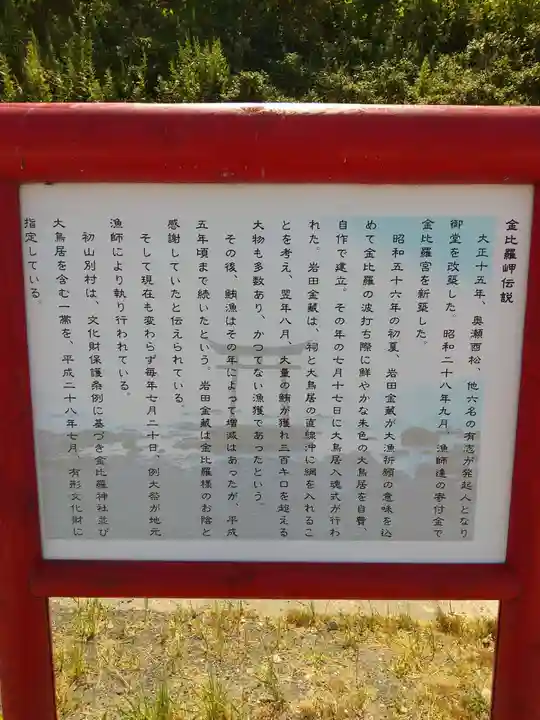 金比羅岬伝説
大正十五年、奥瀬酉松、他六名の有志が発起人となり
御堂を改築した。昭和二十八年九月、漁師達の寄付金で
金比羅宮を新築した。
昭和五十六年の初夏、岩田金蔵が大漁祈願の意味を込
めて金比羅の波打ち際に鮮やかな朱色の大鳥居を自費、
自作で建立。その年の七月十七日に大鳥居入魂式が行わ
れた。岩田金蔵は、祠と大鳥居の直線沖に網を入れるこ
とを考え、翌年八月、大量の鮪が獲れ三百キロを超える
大物も多数あり、かつてない漁獲であったという。
その後、鮪漁はその年によって増減はあったが、平成
五年頃まで続いたという。岩田金蔵は金比羅様のお陰と
感謝していたと伝えられている。
そして現在も変わらず毎年七月二十日、例大祭が地元
漁師により執り行われている。
初山別村は、文化財保護条例に基づき金比羅神社並び
大鳥居を含む一帯を、平成二十八年七月、有形文化財に
指定している。